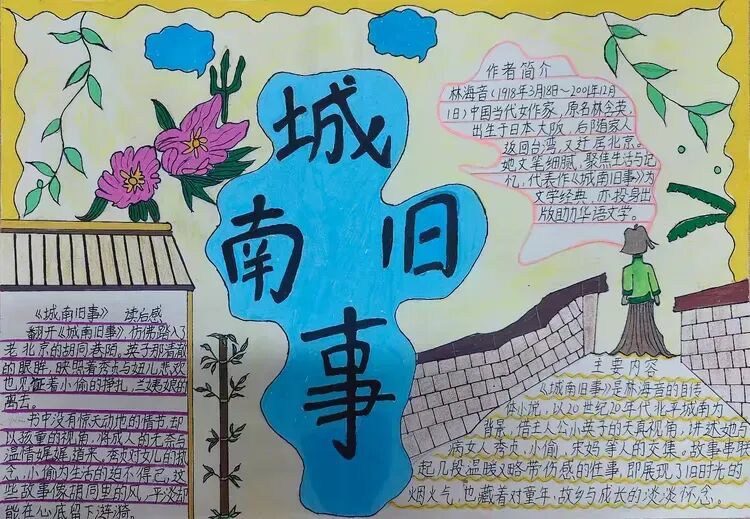 城
南
旧
事
作者简介
林海音(1918年3月18日～2001年12月
1日)中国当代女作家,原名林含英,
出生于日本大阪,后随家人
返回台湾,又迁居北京。
她文笔细腻,聚焦生活与记
忆,代表作《城南旧事》为
文学经典,亦投身出
版助力华语文学。
《城南旧事》 读后感
翻开《城南旧事》仿佛踏入了
老北京的胡同巷陌,英子那清澈
的眼眸,映照着秀贞与妞儿悲欢
也见证着小偷的挣扎,兰姨娘的
离去。
书中没有惊天动地的情节却
以孩童的视角,将成人的无奈与
温情娓娓道来,秀贞对女儿的执
念,小偷为生活的迫不得已,这
些故事像胡同里的风,平淡却
能在心底留下涟漪。
主要内容
《城南旧事》是林海音的自传
体小说,以20世纪20年代北平城南为
背景,借主人公小英子的天真视角,讲述她与
病女人秀贞,小偷,宋妈等人的交集。故事串联
起几段温暖又略带伤感的往事,即展现了旧时光的
烟火气,也藏着对童年,故乡与成长的淡淡怀念。